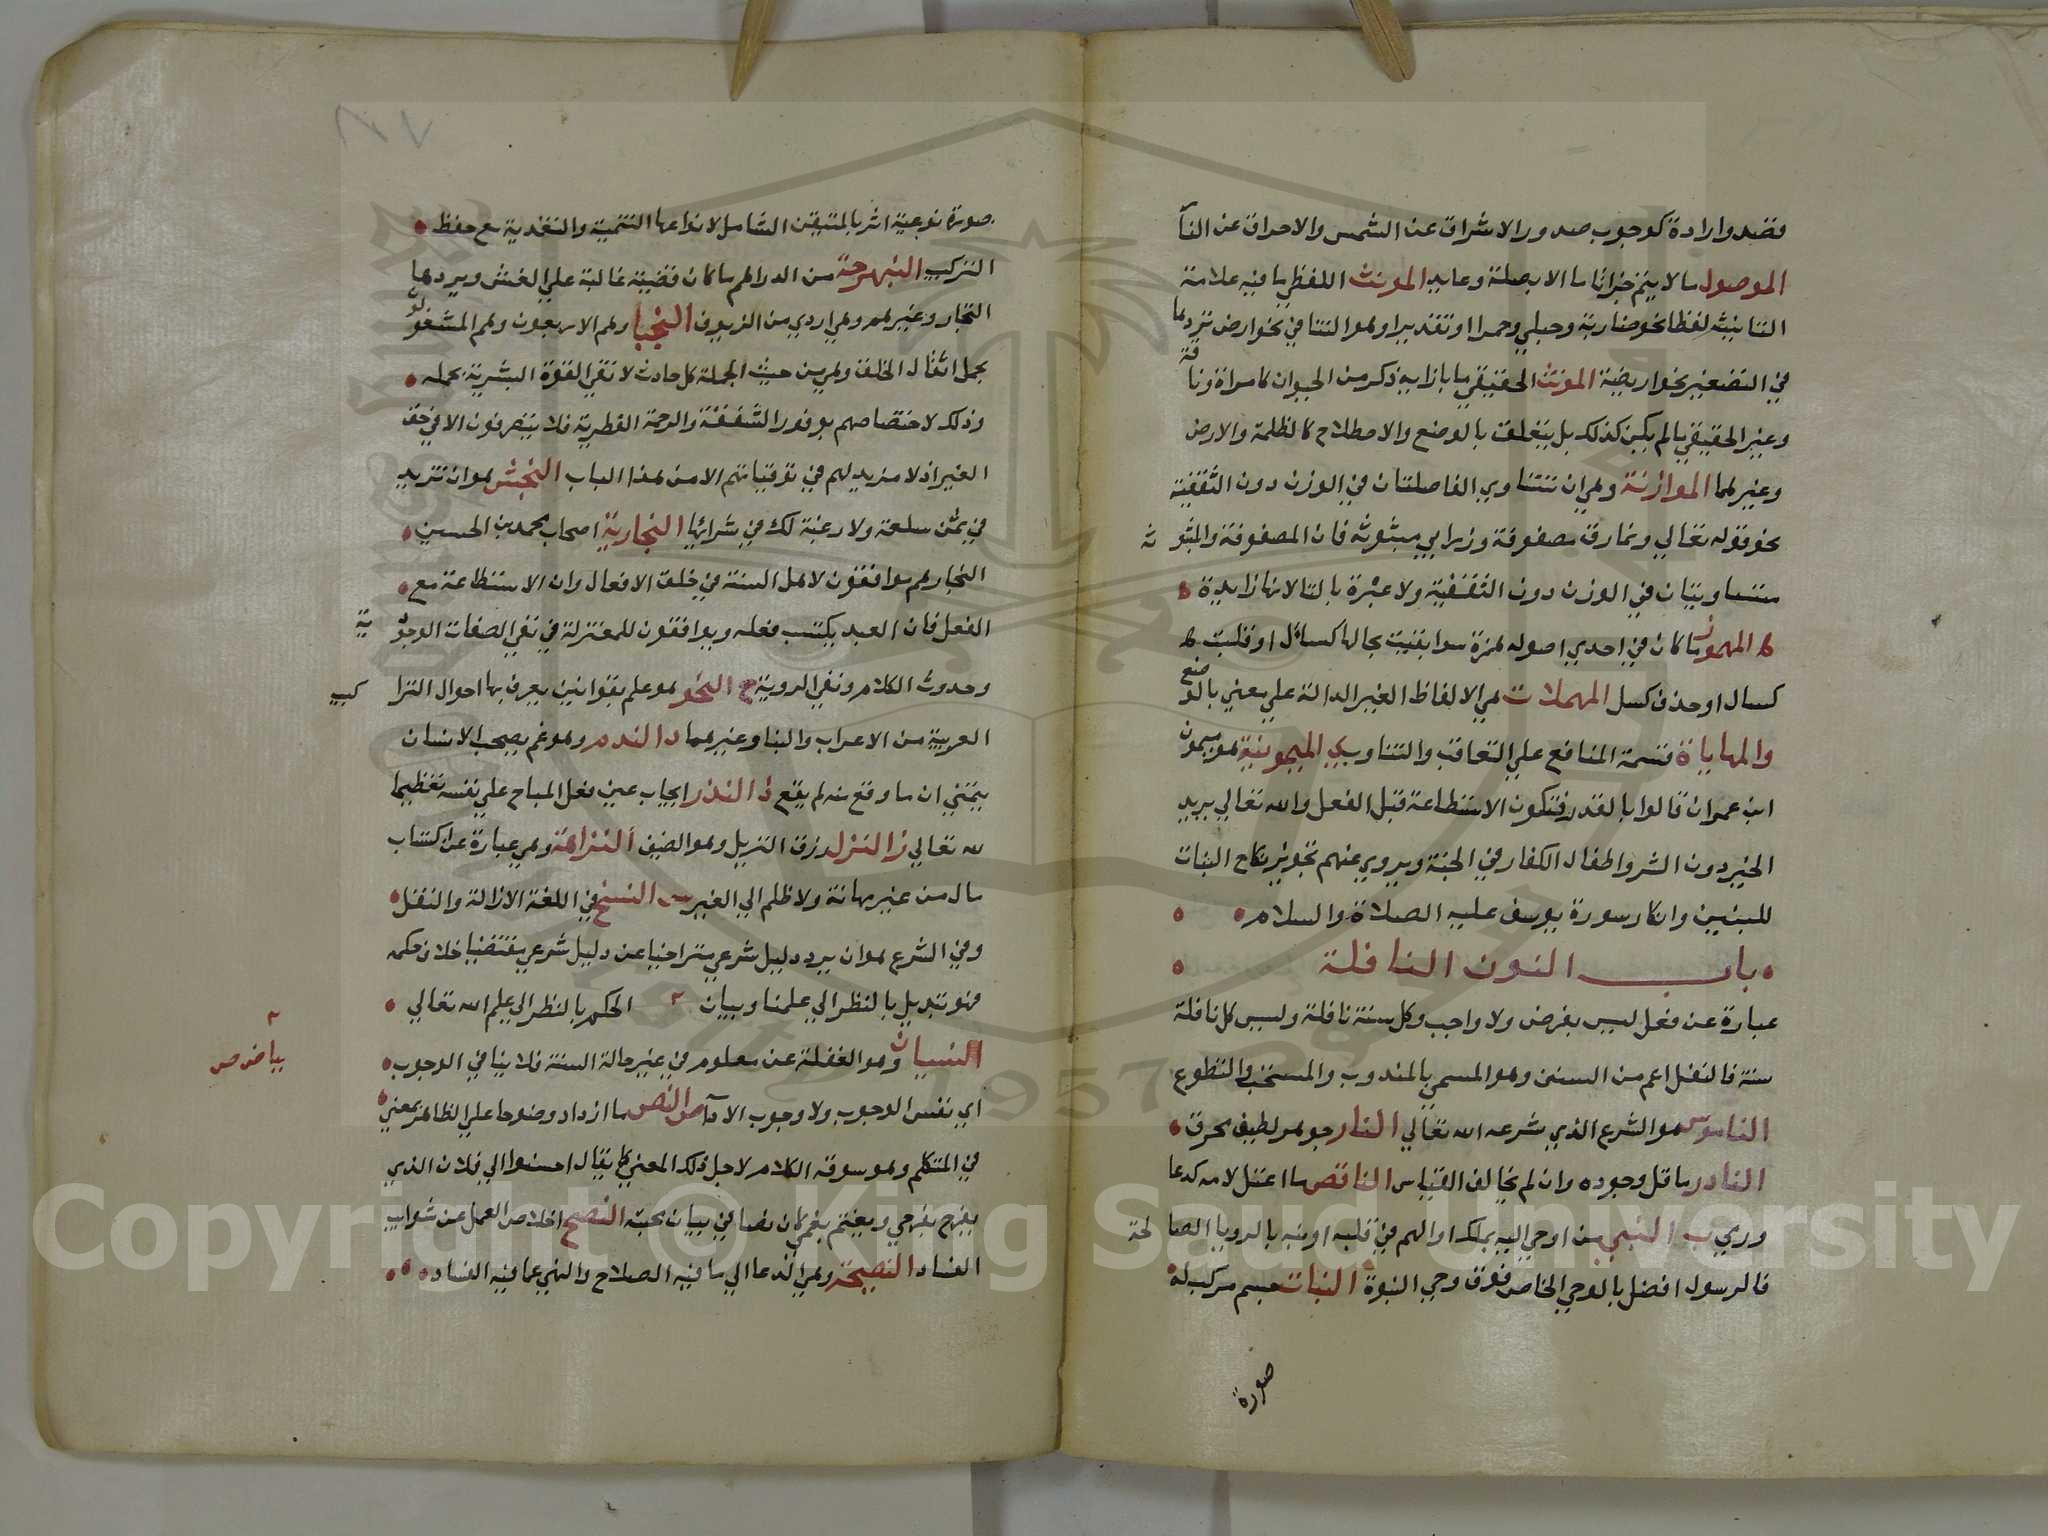 قصد وارادة كوجوب صدور الاشراق عن الشمس والاحراق عن النآ
الموصول ما لا يتم جزءا تاما الا بصلة وعايد المونث اللفظي ما فيه علامة
التانيث لفظا نحو ضاربة وحبلى وحمرا او تقديرا وهو التا في نحو ارض تردها
في التصغير نحو اريضة المونث الحقيقي ما بازايه ذكر من الحيوان كامراة وناقة
وغير الحقيقي ما لم يكن كذلك بل يتعلق بالوضع والاصطلاح كالظلمة والارض
وغيرهما الموازنة وهي ان تتساوي الفاصلتان في الوزن دون التقفية
نحو قوله تعالي ونمارق مصفوفة وزرابي مبثوثة فان المصفوفة والمبثوثة
متساويتان في الوزن دون التقفية ولا عبرة بالتا لانها زايدة
المهموز ما كان في احدي اصوله همزة سوا بقيت بحالها كسأل او قلبت
كسال او حذف كسل المهملات هي الالفاظ الغير الدالة علي معني بالوضع
والمهاياة قسمة المنافع علي التعاقب والتناوب الميمونية هو ميمون
ابن عمران قالوا بالقدر فتكون الاستطاعة قبل الفعل والله تعالي يريد
الخير دون الشر واطفال الكفار في الجنة ويروي عنهم تجويز نكاح البنات
للبنين وانكار سورة يوسف عليه الصلاة والسلام
باب النون النافلة
عبارة عن فعل ليس بفرض ولا واجب وكل سنة نافلة وليس كل نافلة
سنة فالنفل اعم من السنن وهو المسمي بالمندوب والمستحب والتطوع
الناموس هو الشرع الذي شرعه الله تعالي النار جوهر لطيف محرق
النادر ما قل وجوده وان لم يخالف القياس الناقص ما اعتل لامه كدعا
ورمي ب النبي من اوحي اليه بملك او الهم في قلبه او نبه بالرويا الصالحة
فالرسول افضل بالوحي الخاص فوق وحي النبوة النبات جسم مركب له
صورة
صورة نوعية اثرها المتيقن الشامل لانواعها التنمية والتغذية مع حفظ
التركيب النبهرجة من الدراهم ما كان فضته غالبة علي الغش ويردها
التجار وغيرهم وهي اردي من الزيوف النجبا وهم الاربعون وهم المشغولون
بحمل اثقال الخلق وهي من حيث الجملة كل حادث لا تفي القوة البشرية بحمله
وذلك لاختصاصهم بوفور الشفقة والرحمة الفطرية فلا يتصرفون الا في حق
الغير اذ لا مزيد لهم في ترقياتهم الا من هذا الباب النجش هو ان تزيد
في ثمن سلعة ولا رغبة لك في شرائها النجارية اصحاب محمد بن الحسين
النجار هم موافقون لاهل السنة في خلق الافعال وان الاستطاعة مع
الفعل فان العبد يكتسب فعله ويوافقون للمعتزلة في نفي الصفات الوجودية
وحدوث الكلام ونفي الروية ح النحو هو علم بقوانين يعرف بها احوال التراكيب
العربية من الاعراب والبنا وغيرهما د الندم وهو غم يصحب الانسان
يتمني ان ما وقع منه لم يقع ذ النذر ايجاب عين فعل المباح علي نفسه تعظيما
لله تعالي ز النزل رزق النزيل وهو الضيف النزاهة وهي عبارة عن اكتساب
مال من غير مهانة ولا ظلم الي الغير س النسخ في اللغة الازالة والنقل
وفي الشرع هو ان يرد دليل شرعي متراخيا عن دليل شرعي مقتضيا خلاف حكمه
فهو تبديل بالنظر الي علمنا وبيان الحكم بالنظر الي علم الله تعالي
النسيان وهو الغفلة عن معلوم في غير حالة السنة فلا ينافي الوجوب
بياض ص
اي نفس الوجوب ولا وجوب الادآ ص النص ما ازداد وضوحا علي الظاهر بمعني
في المتكلم وهو سوقه الكلام لاجل ذلك المعني كما يقال احسنوا الي فلان الذي
يفرح بفرحي ويغتم بغمي كان نصا في بيان محبته النصح اخلاص العمل عن شوايب
الفساد النصيحة وهي الدعا الي ما فيه الصلاح والنهي عما فيه الفساد
Copyright © King Saud University
1957